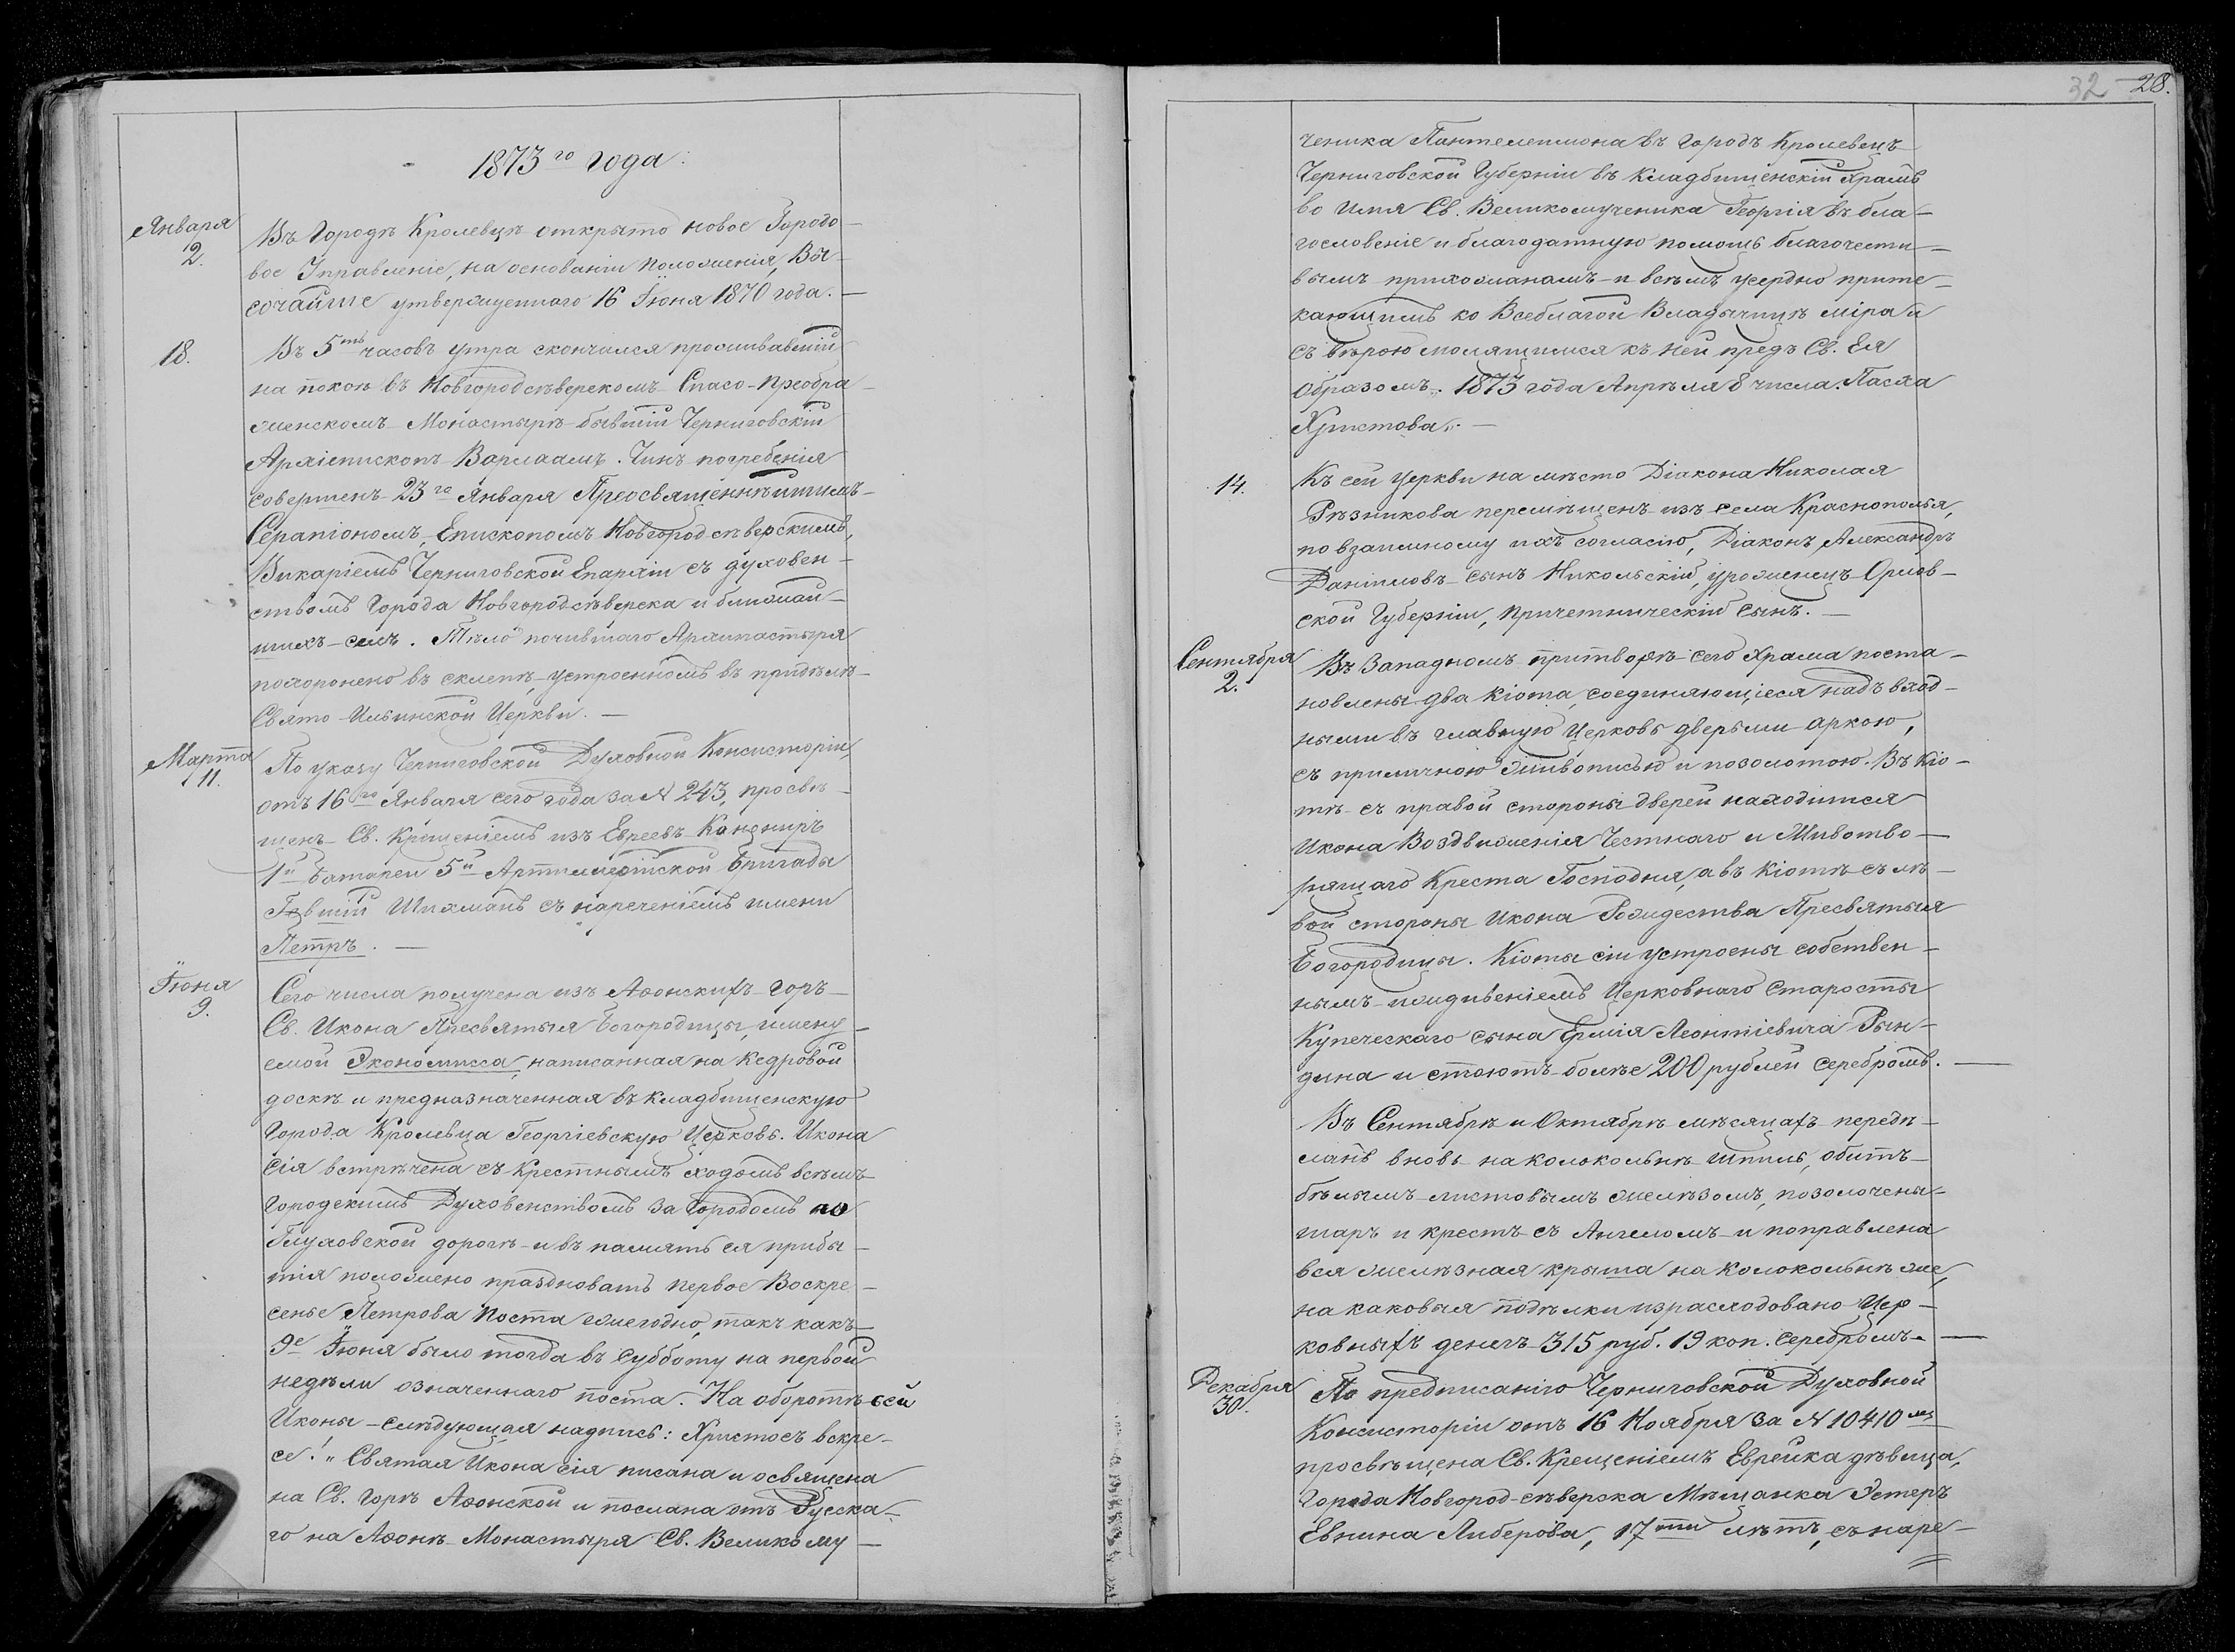 1873го года:
Января
2.
Въ Городѣ Кролевцѣ открыто новое Городо-
вое Управленіе, на основаніи Положенія, Вы-
сочайше утвержденнаго 16 Іюня 1870 года. —
18.
Въ 5ть часовъ утра скончался проживавшій
на покоѣ въ Новгородсѣверскомъ Спасо-Преобра-
женскомъ Монастырѣ бывшій Черниговскій
Архіепископъ Варлаамъ. Чинъ погребенія
совершенъ 23го Января Преосвященнѣйшимъ
Серапіономъ, Епископомъ Новгородсѣверскимъ,
Викаріемъ Черниговской Епархіи съ духовен-
ствомъ Города Новгородсѣверска и ближай-
шихъ селъ. Тѣло почившаго Архипастыря
похоронено въ склепѣ, устроенномъ въ придѣлѣ
Свято-Ильинской Церкви. —
Марта
11.
По указу Черниговской Духовной Консисторіи,
отъ 16го Января сего года за N 243, просвѣ-
щенъ Св. Крещеніемъ изъ Евреевъ Канониръ
1й Батареи 5й Артиллерійской Бригады
Шихманъ съ нареченіемъ имени
Петръ. —
Іюня
9.
Сего числа получена изъ Аѳонскихъ горъ
Св. Икона Пресвятыя Богородицы, имену-
емой Экономисса, написанная на Кедровой
доскѣ и предназначенная въ Кладбищенскую
Города Кролевца Георгіевскую Церковь. Икона
сія встрѣчена съ Крестнымъ ходомъ всѣмъ
Городскимъ Духовенствомъ за Городомъ по
Глуховской дорогѣ и въ память ея прибы-
тія положено праздновать первое Воскре-
сенье Петрова Поста ежегодно, такъ какъ
9е Іюня было тогда въ Субботу на первой
недѣли означеннаго поста. На оборотѣ сей
Иконы — слѣдующая надпись: Христосъ вскре-
се! „ Святая Икона сія писана и освящена
на Св. Горѣ Аѳонской и послана отъ Русска-
го на Аѳонѣ Монастыря Св. Великому-
32 28.
ченика Пантелеимона въ городъ Кролевецъ
Черниговской Губерніи въ Кладбищенскій Храмъ
во имя Св. Великомученика Георгія въ бла-
гословеніе и благодатную помощь благочести-
вымъ прихожанамъ и всѣмъ усердно прите-
кающимъ ко Всеблагой Владычицѣ міра и
съ вѣрою молящимся къ Ней предъ Св. Ея
образомъ. 1873 года Апрѣля 8 числа. Пасха
Христова. —
14.
Къ сей церкви на мѣсто Діакона Николая
Рѣзникова перемѣщенъ изъ села Краснополья,
по взаимному ихъ согласію, Діаконъ Александръ
Даніиловъ сынъ Никольскій, уроженецъ Орлов-
ской Губерніи, причетническій сынъ. —
Сентября
2.
Въ Западномъ притворѣ сего Храма поста-
новлены два Кіота, соединяющіеся надъ вход-
ными въ главную Церковь дверьми аркою,
съ приличною живописью и позолотою. Въ Кіо-
тѣ съ правой стороны дверей находится
Икона Воздвиженія Честнаго и Животво-
рящаго Креста Господня, а въ Кіотѣ съ лѣ-
вой стороны Икона Рождества Пресвятыя
Богородицы. Кіоты сіи устроены собствен-
нымъ иждивеніемъ Церковнаго Старосты
Купеческаго сына Ермія Леонтіевича Рын-
дина и стоютъ болѣе 200 рублей серебромъ. —
Въ Сентябрѣ и Октябрѣ мѣсяцахъ передѣ-
ланъ вновь на колокольнѣ шпиль, обитъ
бѣлымъ листовымъ желѣзомъ, позолочены
шаръ и крестъ съ Ангеломъ и поправлена
вся желѣзная крыша на Колокольнѣ же,
на каковыя подѣлки израсходовано Цер-
ковныхъ денегъ 315 руб. 19 коп. серебромъ. —
Декабря
30.
По предписанію Черниговской Духовной
Консисторіи отъ 16 Ноября за N 10410мъ
просвѣщена Св. Крещеніемъ Еврейка дѣвица,
Города Новгород-сѣверска Мѣщанка Эстеръ
Евнина Либерова, 17ти лѣтъ, съ наре-